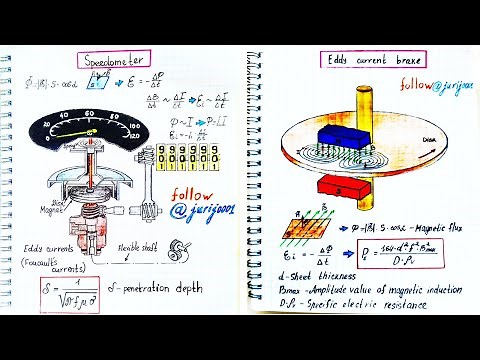 Speedometer
Φ=|B|·S·cosα ⇒ Ɛ = -ΔΦ/Δt
ΔΦ/Δt ~ ΔI/Δt ⇒ Ɛi ~ ΔI/Δt
Φ~I ⇒ Φ=LI
Ɛi = -L·ΔI/Δt
0 20 40 60 80 100 120
Disk
Magnet
follow
@jurij0001
Eddy currents
(Foucault's
currents)
flexible shaft
δ = 1/√(πfμσ) δ-penetration depth
Eddy current brake
follow@jurij0001
Disk
Φ=|B|·S·cosα - Magnetic flux
Ɛi = -ΔΦ/Δt
d-Sheet thickness
Bmax - Amplitude value of magnetic induction
D·ρv - Specific electric resistance